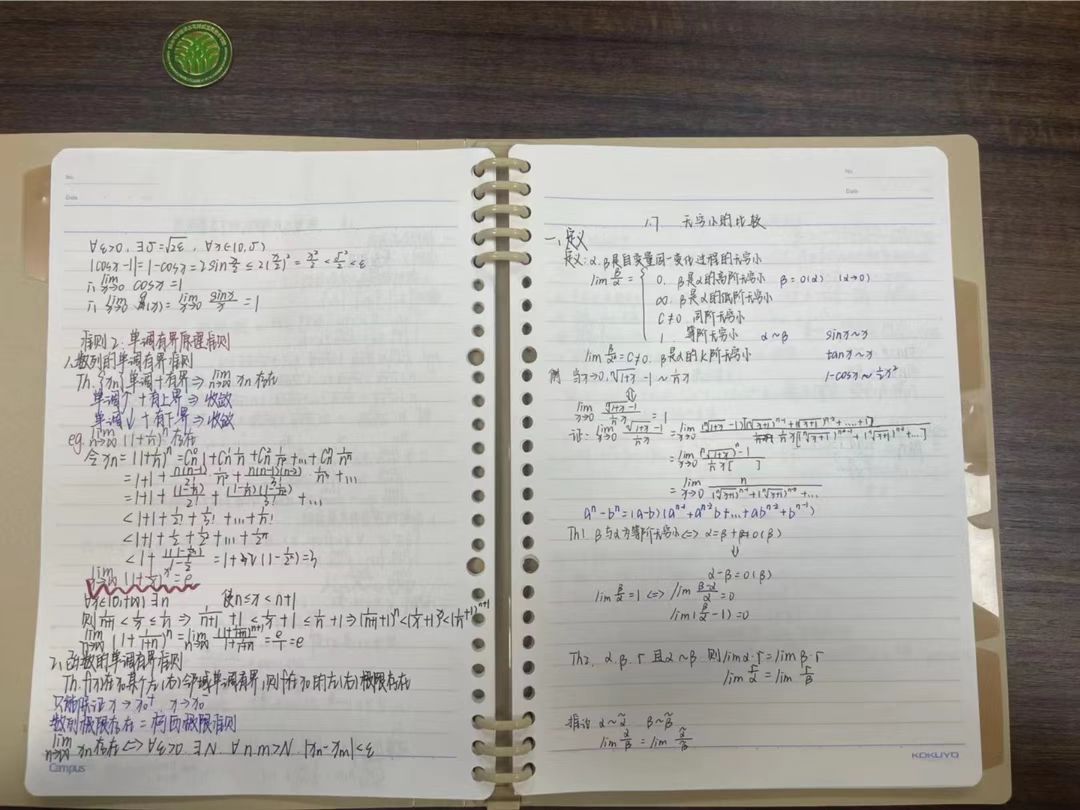 No.
Date
∀ε>0, ∃δ=√2ε, ∀x∈(0,δ)
|cosx-1|=1-cosx=2sin x/2 ≤ 2(x/2)² = x²/2 < δ²/2 < ε
∴ lim x→0 cosx=1
∴ lim x→0 (x)= lim x→0 sinx/x = 1
准则2:单调有界原理准则
1.数列的单调有界准则
Th.{xn}单调+有界⇒ lim n→∞ xn存在
单调↑+有上界⇒收敛
单调↓+有下界⇒收敛
eg. lim n→∞ (1+1/n)ⁿ存在
令xn=(1+1/n)ⁿ=Cn⁰1+Cn¹ 1/n+Cn² 1/n²+...+Cnⁿ 1/nⁿ
=1+1+ n(n-1)/2! 1/n²+ n(n-1)(n-2)/3! 1/n³+...
=1+1+ (1-1/n)/2! + (1-1/n)(1-2/n)/3! +...
<1+1+1/2!+1/3!+...+1/n!
<1+1+1/2+1/2²+...+1/2ⁿ
=3
lim (1+1/x)ˣ=e
∀x∈(0,+∞) ∃n 使n≤x<n+1
则 1/(n+1)<1/x≤1/n ⇒ 1/(n+1)+1<1/x+1≤1/n+1⇒(1/(n+1)+1)ⁿ<(1/x+1)ˣ<(1/n+1)ⁿ⁺¹
lim n→∞ (1+1/(1+n))ⁿ= lim n→∞ (1+1/(1+n))ⁿ⁺¹/(1+1/(1+n)) = e/1 =e
2.函数的单调有界准则
Th.f(x)在x₀某个左(右)邻域单调有界,则f在x₀的左(右)极限存在
x→x₀⁺ x→x₀⁻
数列极限存在=柯西极限准则
lim n→∞ xn存在⇔∀ε>0 ∃N ∀n.m>N |xn-xm|<ε
Campus
No.
Date
1.7 无穷小的比较
一、定义
定义:α.β是自变量同一变化过程的无穷小
lim β/α = { 0. β是α的高阶无穷小 β=o(α) (α→0)
∞. β是α的低阶无穷小
C≠0 同阶无穷小
1. 等价无穷小 α~β sinx~x
lim β/αᵏ=C≠0. β是α的k阶无穷小 tanx~x
例 当x→0.ⁿ√(1+x)-1~1/n x 1-cosx~1/2x²
⇕
lim x→0 (ⁿ√(1+x)-1)/(1/n x) =1
证: lim x→0 (ⁿ√(1+x)-1)/(1/n x) = lim x→0 (ⁿ√(1+x)-1)[(ⁿ√(x+1))ⁿ⁻¹+(ⁿ√(x+1))ⁿ⁻²+...+1]/(1/n x[(ⁿ√(x+1))ⁿ⁻¹+(ⁿ√(x+1))ⁿ⁻²+...])
= lim x→0 ((ⁿ√(1+x))ⁿ-1)/(1/n x[ ])
= lim x→0 n/((ⁿ√(x+1))ⁿ⁻¹+(ⁿ√(x+1))ⁿ⁻²+...)
aⁿ-bⁿ=(a-b)(aⁿ⁻¹+aⁿ⁻²b+...+abⁿ⁻²+bⁿ⁻¹)
Th1. β与α为等阶无穷小⇔α=β+o(β)
⇓
α-β=o(β)
lim β/α=1⇔lim (β-α)/α=0
lim(β/α-1)=0
Th2. α.β.γ 且α~β 则limα·γ=limβ·γ
lim γ/α = lim γ/β
推论 α~α̃ β~β̃
lim α/β = lim α̃/β̃
KOKUYO